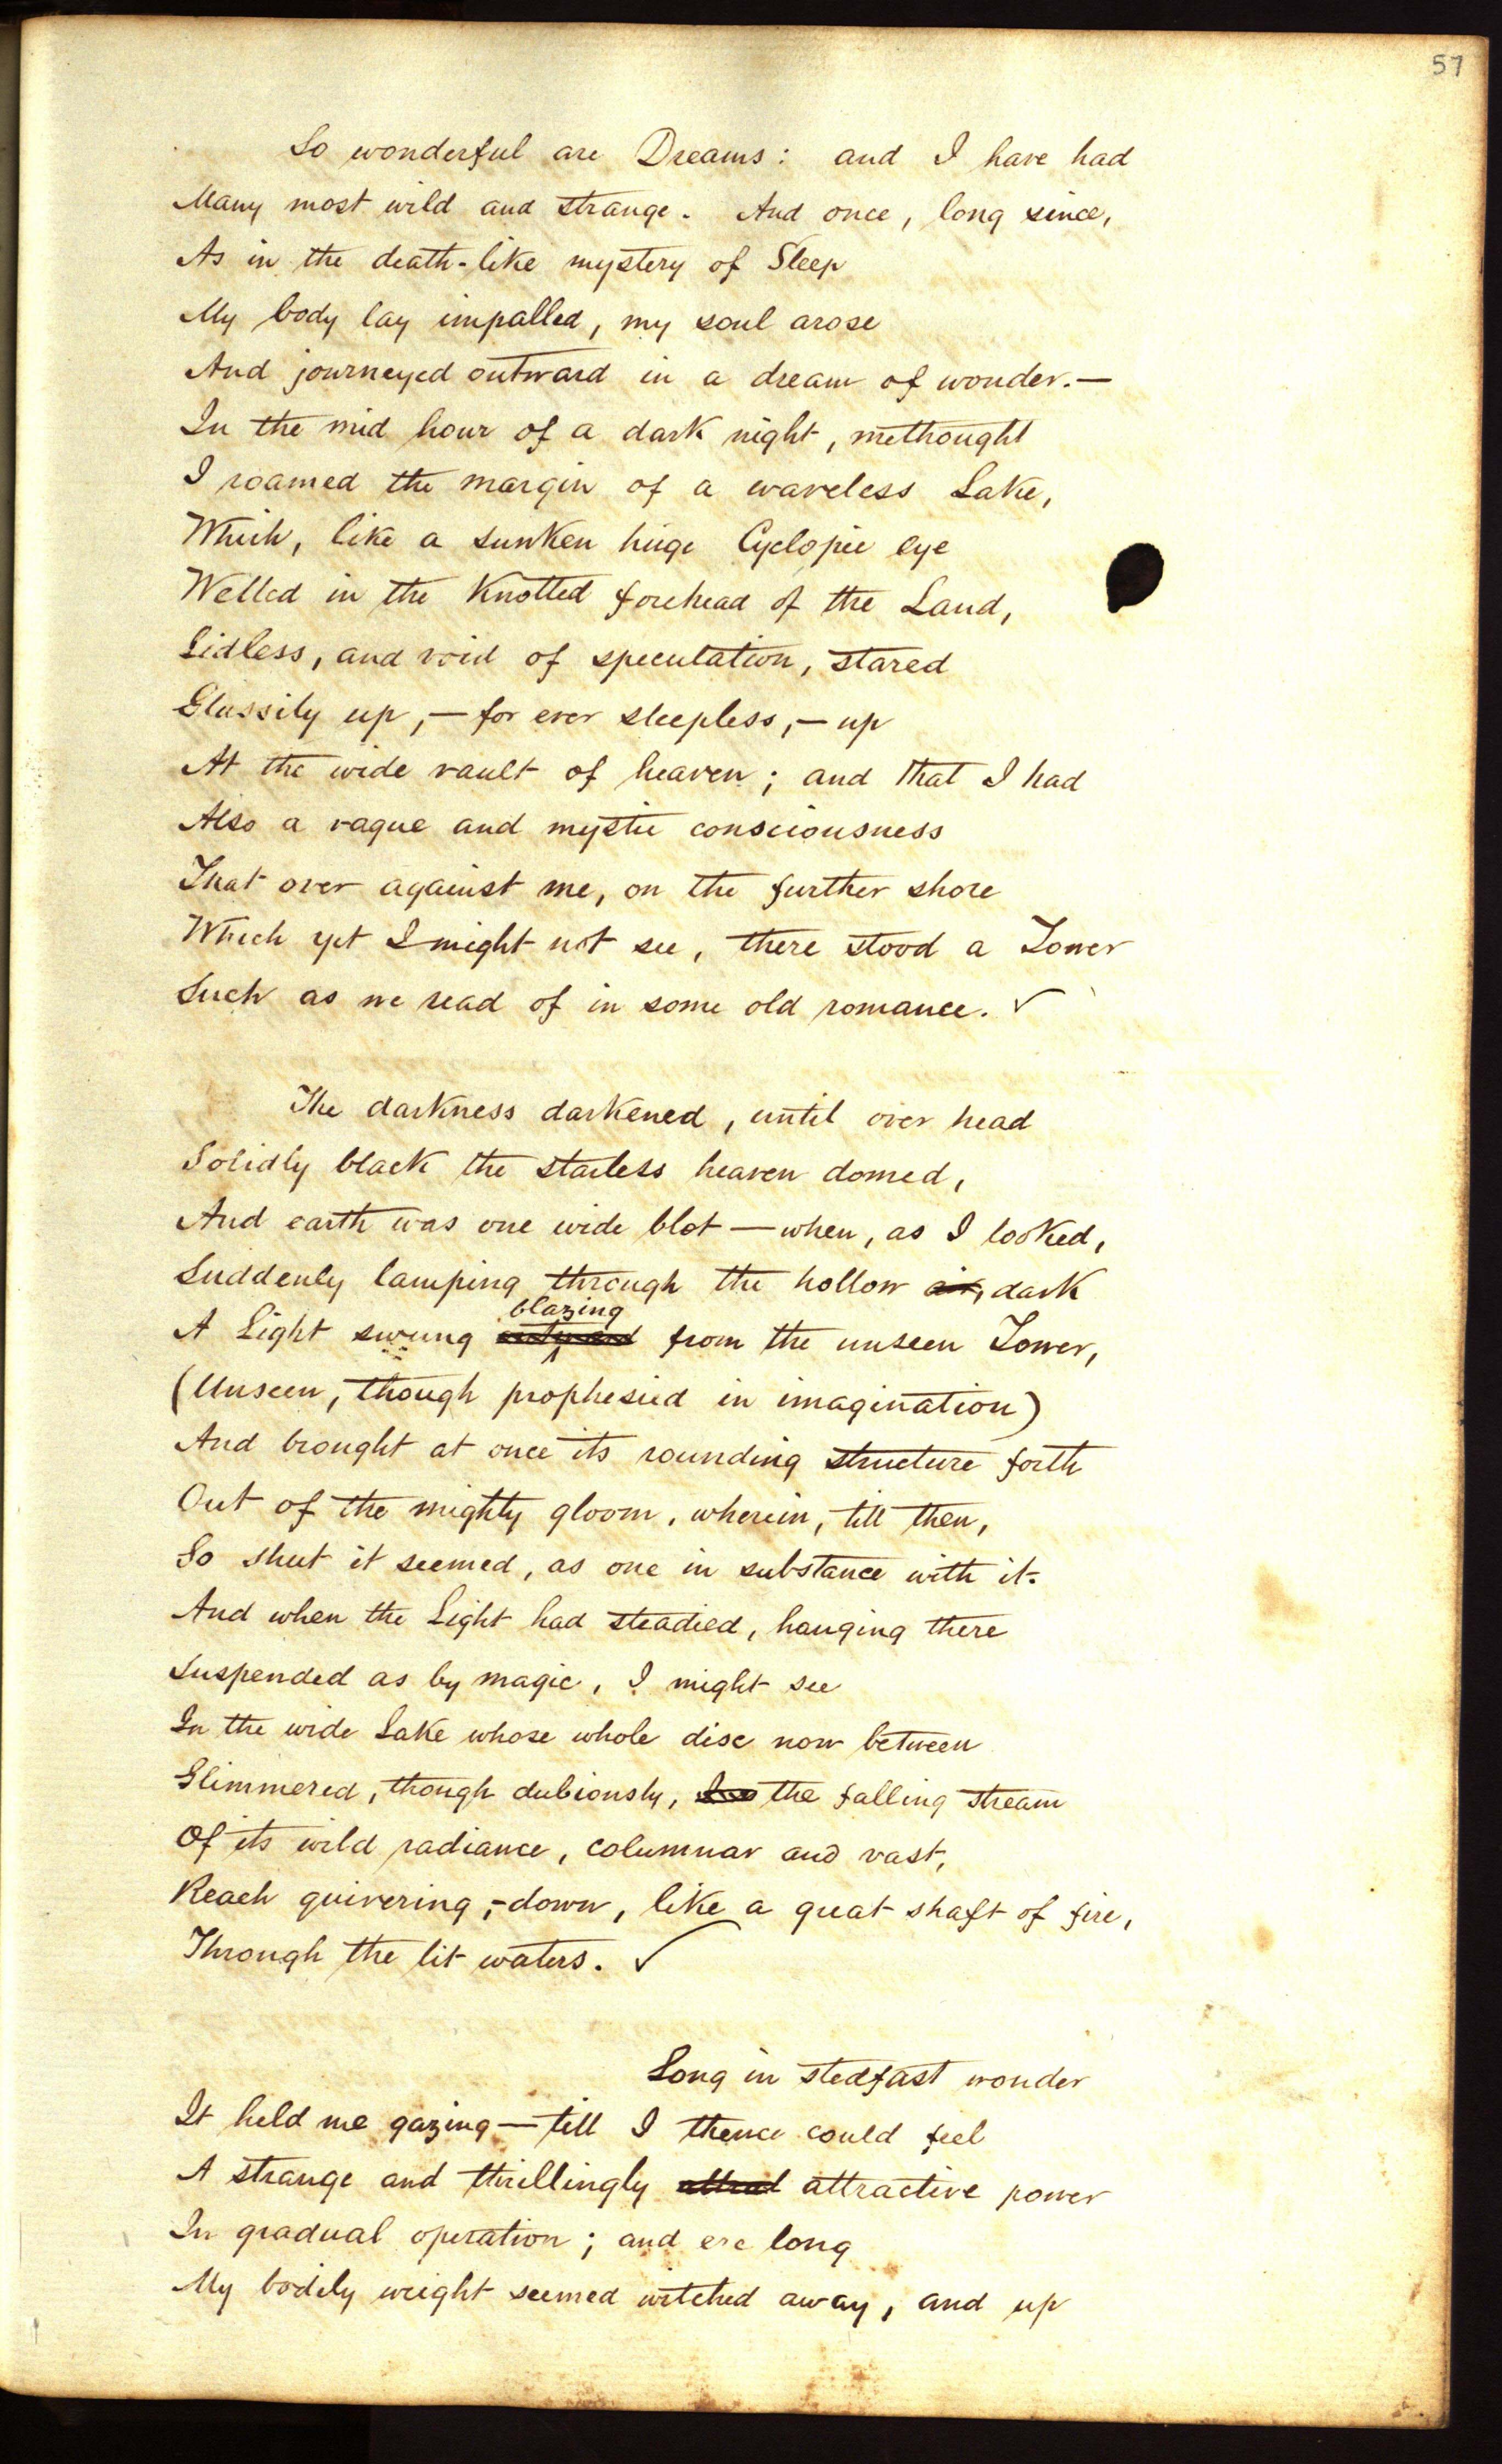 57
So wonderful are Dreams: and I have had
Many most wild and strange. And once, long since,
As in the death-like mystery of Sleep
My body lay impalled, my soul arose
And journeyed outward in a dream of wonder.—
In the mid hour of a dark night, methought
I roamed the margin of a waveless Lake,
Which, like a sunken huge Cyclopic eye
Welled in the Knotted forehead of the Land,
Lidless, and void of speculation, stared
Glassily up,—for ever sleepless,—up
At the wide vault of heaven; and that I had
Also a vague and mystic consciousness
That over against me, on the further shore
Which yet I might not see, there stood a Tower
Such as we read of in some old romance. ✓
The darkness darkened, until over head
Solidly black the starless heaven domed,
And earth was one wide blot—when, as I looked,
Suddenly lamping through the hollow air, dark
blazing
A Light swung outward from the unseen Tower,
(Unseen, though prophesied in imagination)
And brought at once its rounding structure forth
Out of the mighty gloom, wherein, till then,
So shut it seemed, as one in substance with it.
And when the Light had steadied, hanging there
Suspended as by magic, I might see
In the wide Lake whose whole disc now between
Glimmered, though dubiously, the falling stream
Of its wild radiance, columnar and vast,
Reach quivering,-down, like a great shaft of fire,
Through the lit waters. ✓
Long in stedfast wonder
It held me gazing—till I thence could feel
A strange and thrillingly attract attractive power
In gradual operation; and ere long
My bodily weight seemed witched away, and up